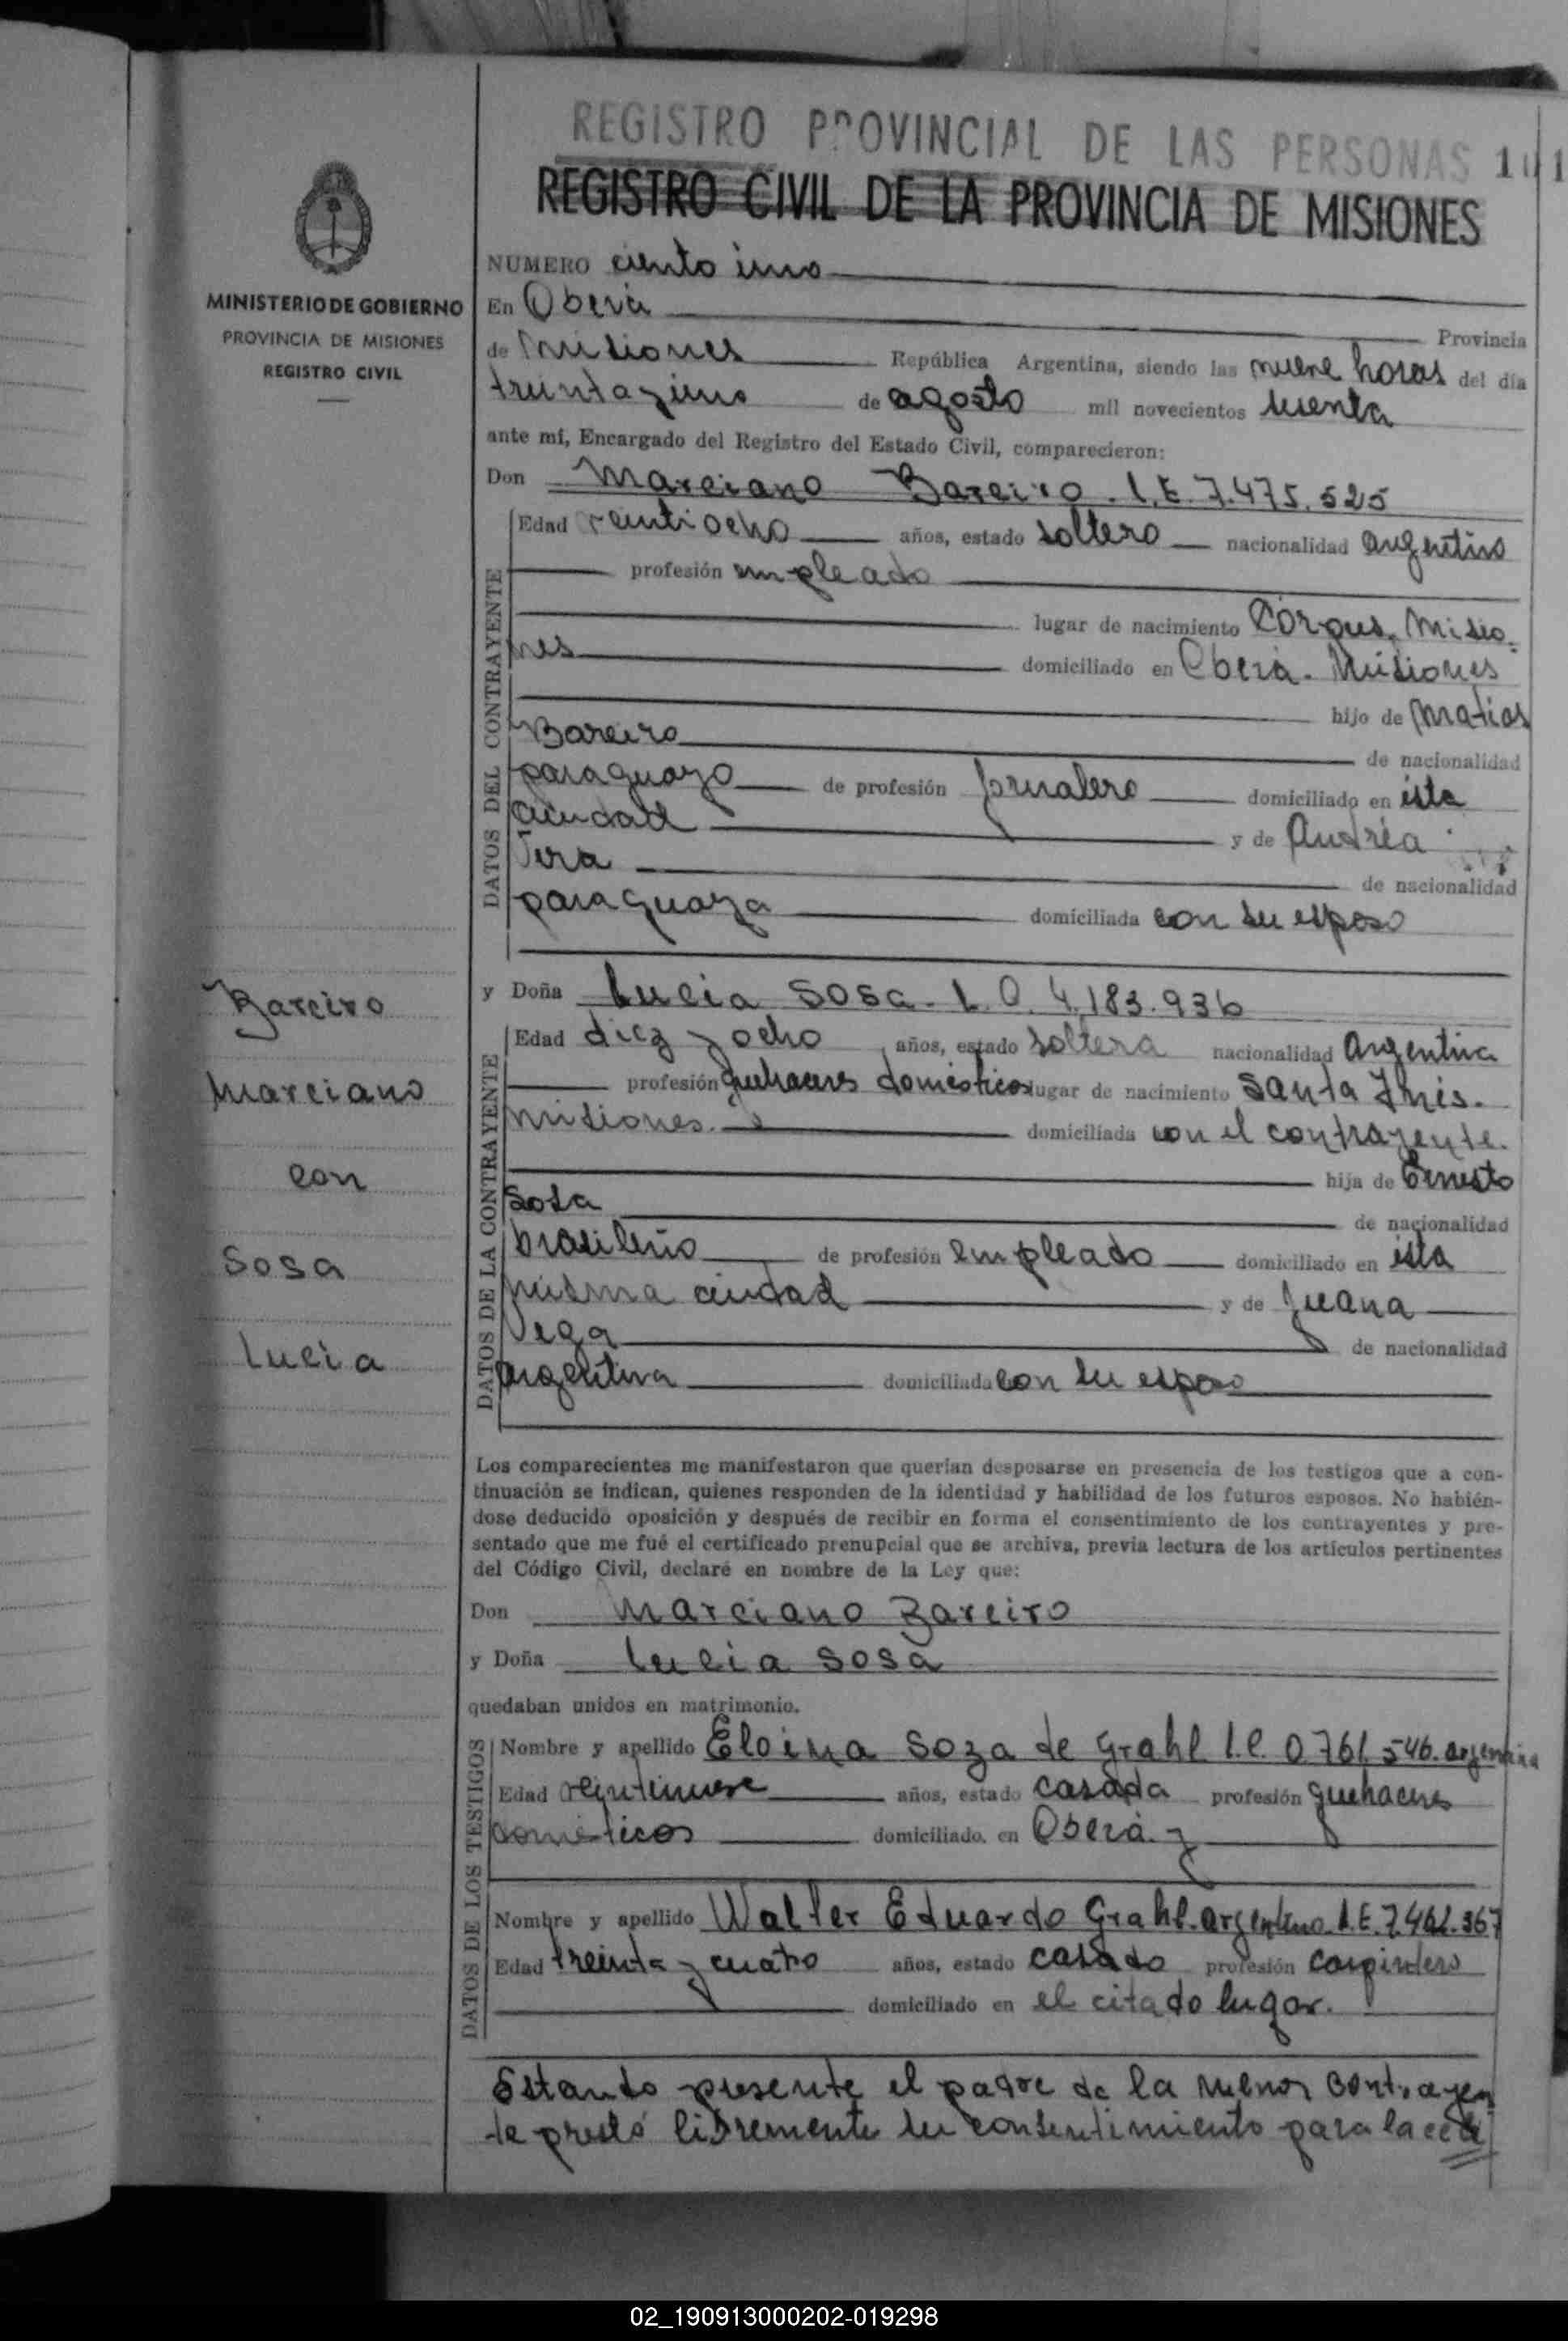 REGISTRO PROVINCIAL DE LAS PERSONAS
REGISTRO CIVIL DE LA PROVINCIA DE MISIONES
MINISTERIO DE GOBIERNO
PROVINCIA DE MISIONES
REGISTRO CIVIL
NUMERO ciento uno
En Oberá
Provincia
de Misiones República Argentina, siendo las nueve horas del día
treinta y uno de agosto mil novecientos sesenta
ante mí, Encargado del Registro del Estado Civil, comparecieron:
Don Marciano Bareiro. L.E. 7.475.525
DATOS DEL CONTRAYENTE
Edad veintiocho años, estado soltero nacionalidad argentino
profesión empleado
lugar de nacimiento Corpus. Misio-
nes domiciliado en Oberá. Misiones
hijo de Matias
Bareiro de nacionalidad
paraguayo de profesión jornalero domiciliado en esta
ciudad y de Andréa
Vera de nacionalidad
paraguaya domiciliada con su esposo
y Doña Lucia Sosa. L.C. 4.183.936
DATOS DE LA CONTRAYENTE
Edad diez y ocho años, estado soltera nacionalidad argentina
profesión quehaceres domésticos lugar de nacimiento Santa Inés.
Misiones. domiciliada con el contrayente.
hija de Ernesto
Sosa de nacionalidad
brasileño de profesión empleado domiciliado en esta
misma ciudad y de Juana
Vega de nacionalidad
argentina domiciliada con su esposo
Bareiro
Marciano
con
Sosa
Lucia
Los comparecientes me manifestaron que querían desposarse en presencia de los testigos que a con-
tinuación se indican, quienes responden de la identidad y habilidad de los futuros esposos. No habién-
dose deducido oposición y después de recibir en forma el consentimiento de los contrayentes y pre-
sentado que me fué el certificado prenupcial que se archiva, previa lectura de los artículos pertinentes
del Código Civil, declaré en nombre de la Ley que:
Don Marciano Bareiro
y Doña Lucia Sosa
quedaban unidos en matrimonio.
DATOS DE LOS TESTIGOS
Nombre y apellido Eloina Soza de Grahl L.C. 0.761.546. argentina
Edad veintinueve años, estado casada profesión quehaceres
domésticos domiciliado en Oberá y
Nombre y apellido Walter Eduardo Grahl. argentino. L.E. 7.462.367
Edad treinta y cuatro años, estado casado profesión carpintero
domiciliado en el citado lugar.
Estando presente el padre de la menor contrayen
te prestó libremente su consentimiento para la ce
02_190913000202-019298